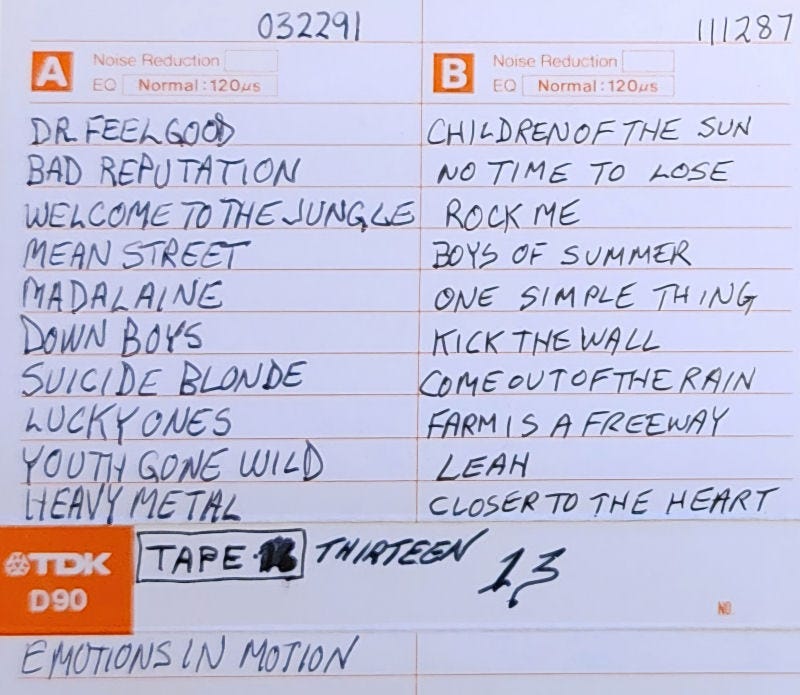 032291
111287
A
Noise Reduction
EQ Normal:120µs
B
Noise Reduction
EQ Normal:120µs
DR. FEELGOOD
BAD REPUTATION
WELCOME TO THE JUNGLE
MEAN STREET
MADALAINE
DOWN BOYS
SUICIDE BLONDE
LUCKY ONES
YOUTH GONE WILD
HEAVY METAL
CHILDREN OF THE SUN
NO TIME TO LOSE
ROCK ME
BOYS OF SUMMER
ONE SIMPLE THING
KICK THE WALL
COME OUT OF THE RAIN
FARM IS A FREEWAY
LEAH
CLOSER TO THE HEART
TDK
D90
TAPE THIRTEEN 13
NO.
EMOTIONS IN MOTION